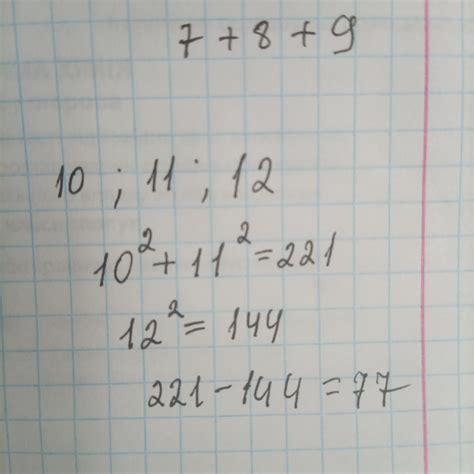 7 + 8 + 9
10 ; 11 ; 12
10² + 11² = 221
12² = 144
221 - 144 = 77